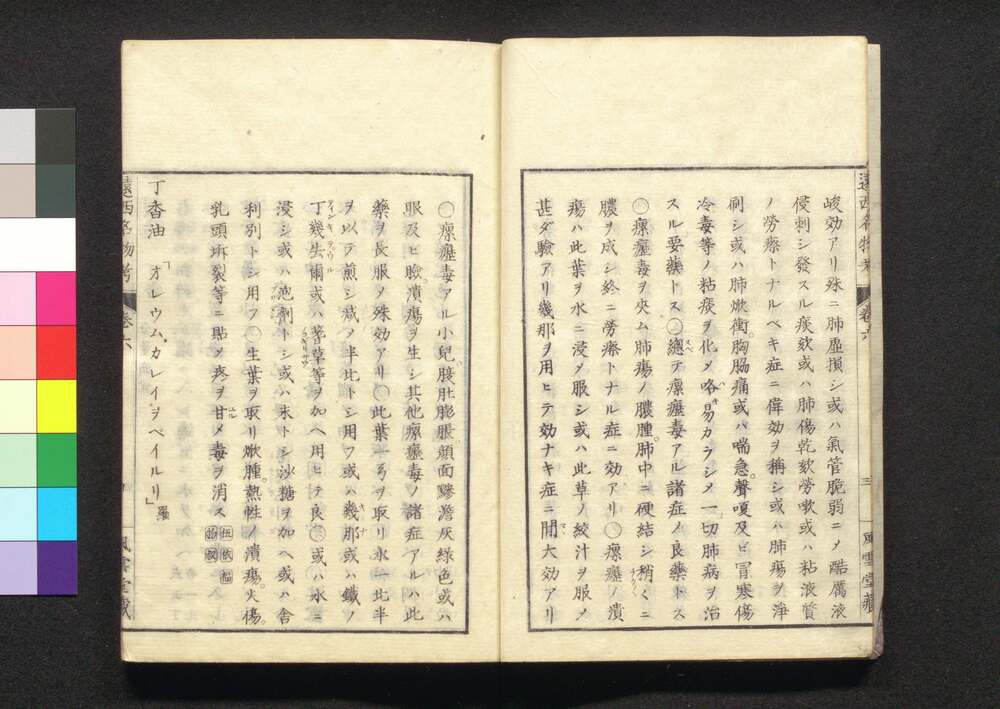 峻効アリ殊ニ肺虚損シ或ハ氣管脆弱ニメ酷厲液
侵刺シ發スル痰欬或ハ肺傷乾欬勞嗽或ハ粘液質
ノ勞瘵トナルベキ症ニ偉効ヲ稱シ或ハ肺瘍ヲ淨
刷シ或ハ肺焮衝。胸脇痛或ハ喘急。聲嗄及ビ冒寒傷
冷毒等ノ粘痰ヲ化メ咯易カラシメ一切肺病ヲ治
スル要藥トス〇總テ瘰癧毒アル諸症ノ良藥トス
〇瘰癧毒ヲ夾ム肺瘍ノ膿腫。肺中ニ硬結シ稍々ニ
膿ヲ成シ終ニ勞瘵トナル症ニ効アリ〇瘰癧ノ潰
瘍ハ此葉ヲ水ニ浸メ服シ或ハ此草ノ絞汁ヲ服メ
甚ダ驗アリ幾那ヲ用ヒテ効ナキ症ニ間大効アリ
遠西名物考 卷六 三 風雲堂藏
〇瘰癧毒アル小兒腹肚膨脹顏面黲澹灰綠色或ハ
眼及ヒ瞼。潰瘍ヲ生シ其他瘰癧毒ノ諸症アルハ此
藥ヲ長服メ殊効アリ〇此葉半弓ヲ取リ水一比半
ヲ以テ煎シ減メ半比トシ用フ或ハ幾那或ハ鐵ノ
丁幾失爾或ハ蓍草等ヲ加ヘ用ヒテ良〇或ハ水ニ
浸シ或ハ泡劑トシ或ハ末トシ沙糖ヲ加ヘ或ハ舎
利別トシ用フ〇生葉ヲ取リ焮腫。熱性ノ潰瘍。火傷。
乳頭坼裂等ニ貼メ疼ヲ甘メ毒ヲ消ス
丁香油 「オレウム、カレイヲペイルリ」羅
遠西名物考 卷六 風雲堂藏